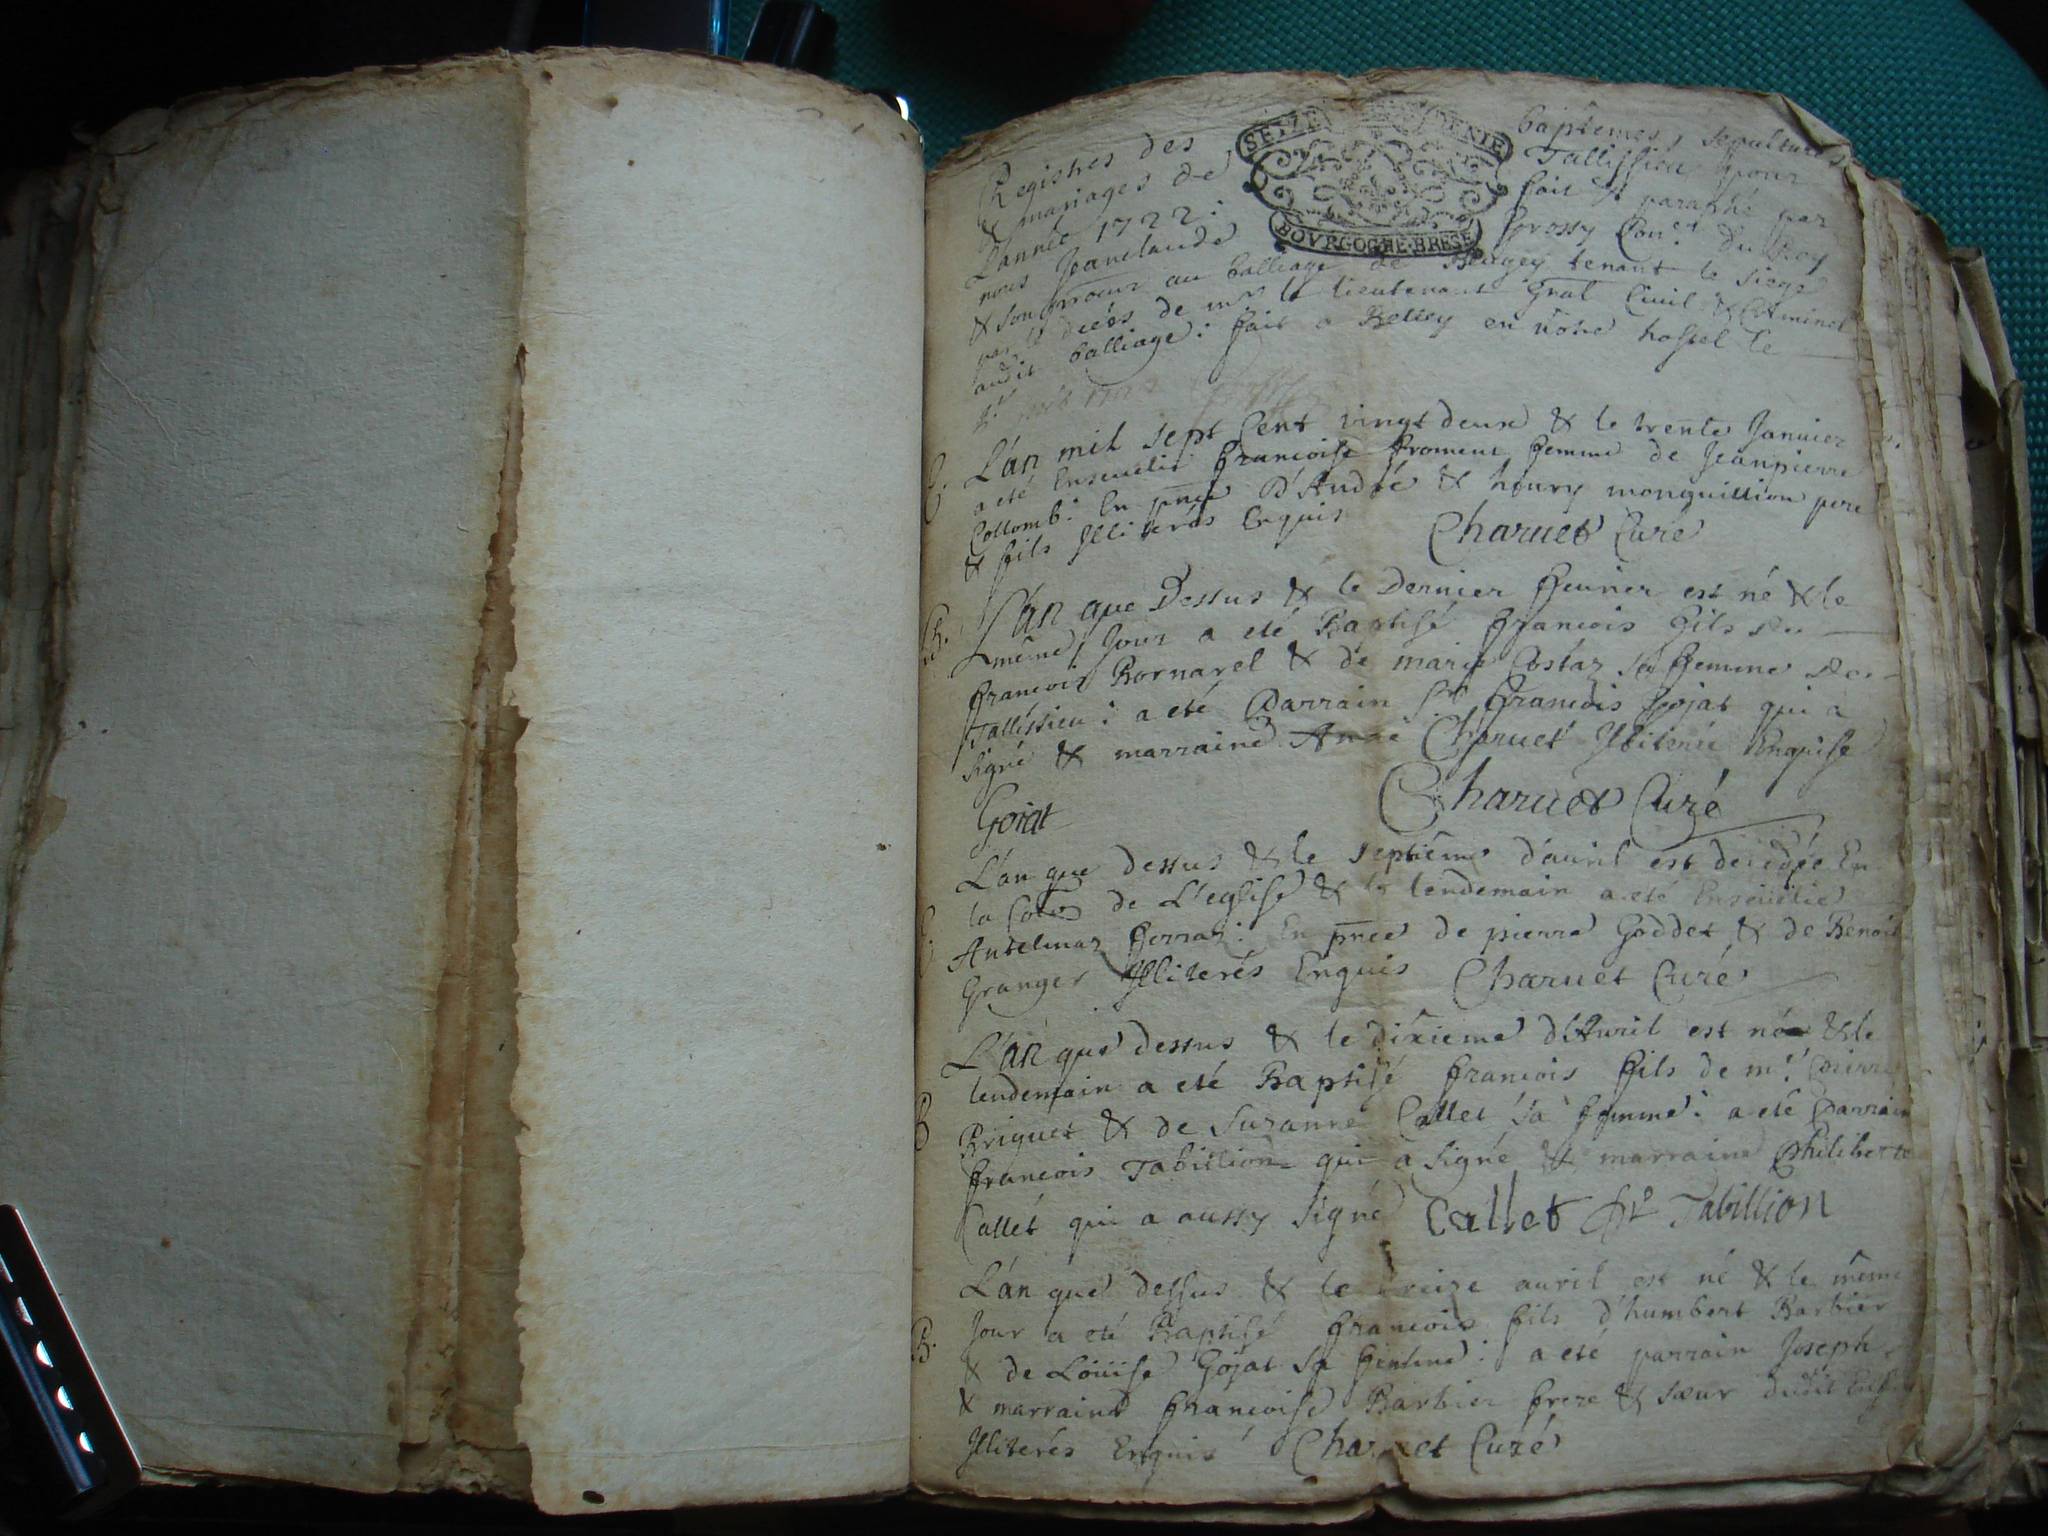 Registres des baptemes, sepultures
& mariages de Tallissieu pour
L'année 1722: fait & paraphé par
nous Jeanclaude Grossy Con.er du Roy
SEIZE DENIE
BOVRGOGNE·BRESE
& son au balliage de Beugey tenant le siege
par le décès de mr le lieutenant Gnal Ciuil & Criminel
audit balliage: fait a Belley en nôtre hostel le
1722
L'an mil sept Cent vingt deux & le trente Januier
a eté Enseuelie francoise froment femme de Jeanpierre
Collomb: En pnce d'André & henry monguillion pere
& fils Illiterés Enquis Charuet Curé
B. L'an que Dessus & le Dernier feurier est né & le
même Jour a eté Baptisé francois fils de
francois Bornarel & de marie Costaz sa femme de
Tallissieu: a eté Parrain Sr francois Gojat qui a
signé & marraine Anne Charuet Illiterée Enquise
Gojat Charuet Curé
L'an que dessus & le septiême d'auril est decedée En
la Cour de L'eglise & le lendemain a eté Enseuelie
Antelmaz ferraz: En pnce de pierre Goddet & de Benoit
Granger Illiterés Enquis Charuet Curé
L'an que dessus & le dixieme d'Auril est né & le
B lendemain a eté Baptisé francois fils de mr. Pierre
Briquet & de Suzanne Callet sa femme: a eté Parrain
francois Tabillion qui a signé & marraine Philiberte
Callet qui a aussy signé Callet fr Tabillion
L'an que dessus & le treize auril est né & le même
B. Jour a eté Baptisé francois fils d'humbert Barbier
& de Loüise Gojat sa femme: a eté parrain Joseph
& marraine francoise Barbier frere & sœur dudit
Illiterés Enquis Charuet Curé